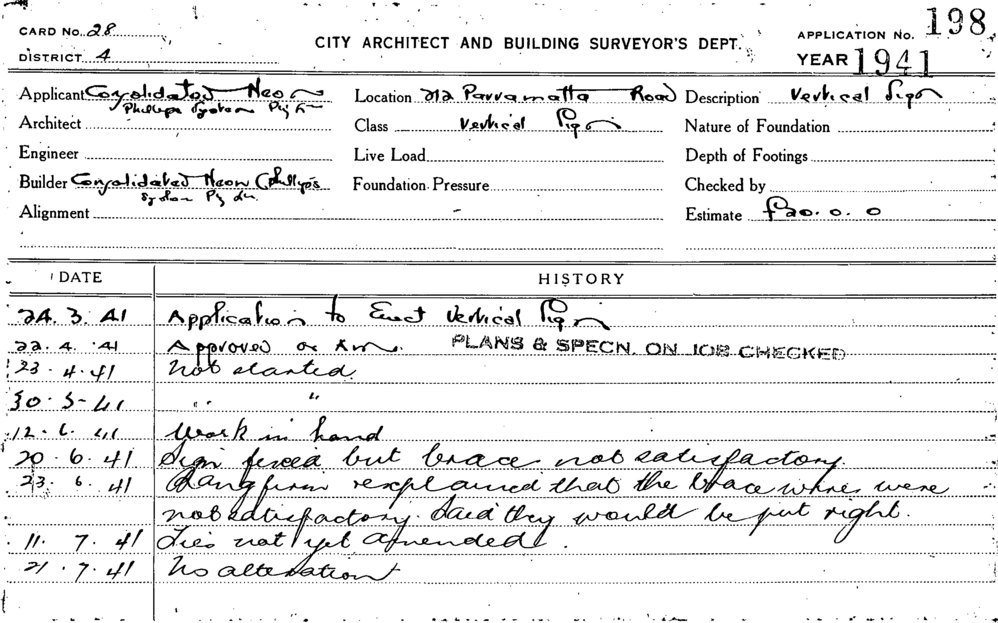 CARD NO. 28
CITY ARCHITECT AND BUILDING SURVEYOR'S DEPT.
APPLICATION NO. 198
DISTRICT 4
YEAR 1941
Applicant Consolidated Neon
Phillips System Pty
Location 212 Parramatta Road
Description Vertical Sign
Architect
Class Vertical Sign
Nature of Foundation
Engineer
Live Load
Depth of Footings
Builder Consolidated Neon (Phillips
System Pty
Foundation Pressure
Checked by
Alignment
Estimate £20.0.0
DATE HISTORY
24.3.41 Application to Erect Vertical Sign
22.4.41 Approved PLANS & SPECN. ON JOB CHECKED
23.4.41 Not started
30.5.41 " "
12.6.41 Work in hand
20.6.41 Sign fixed but brace not satisfactory.
23.6.41 Rang firm & explained that the brace wires were
not satisfactory. Said they would be put right.
11.7.41 Ties not yet amended.
21.7.41 No alteration